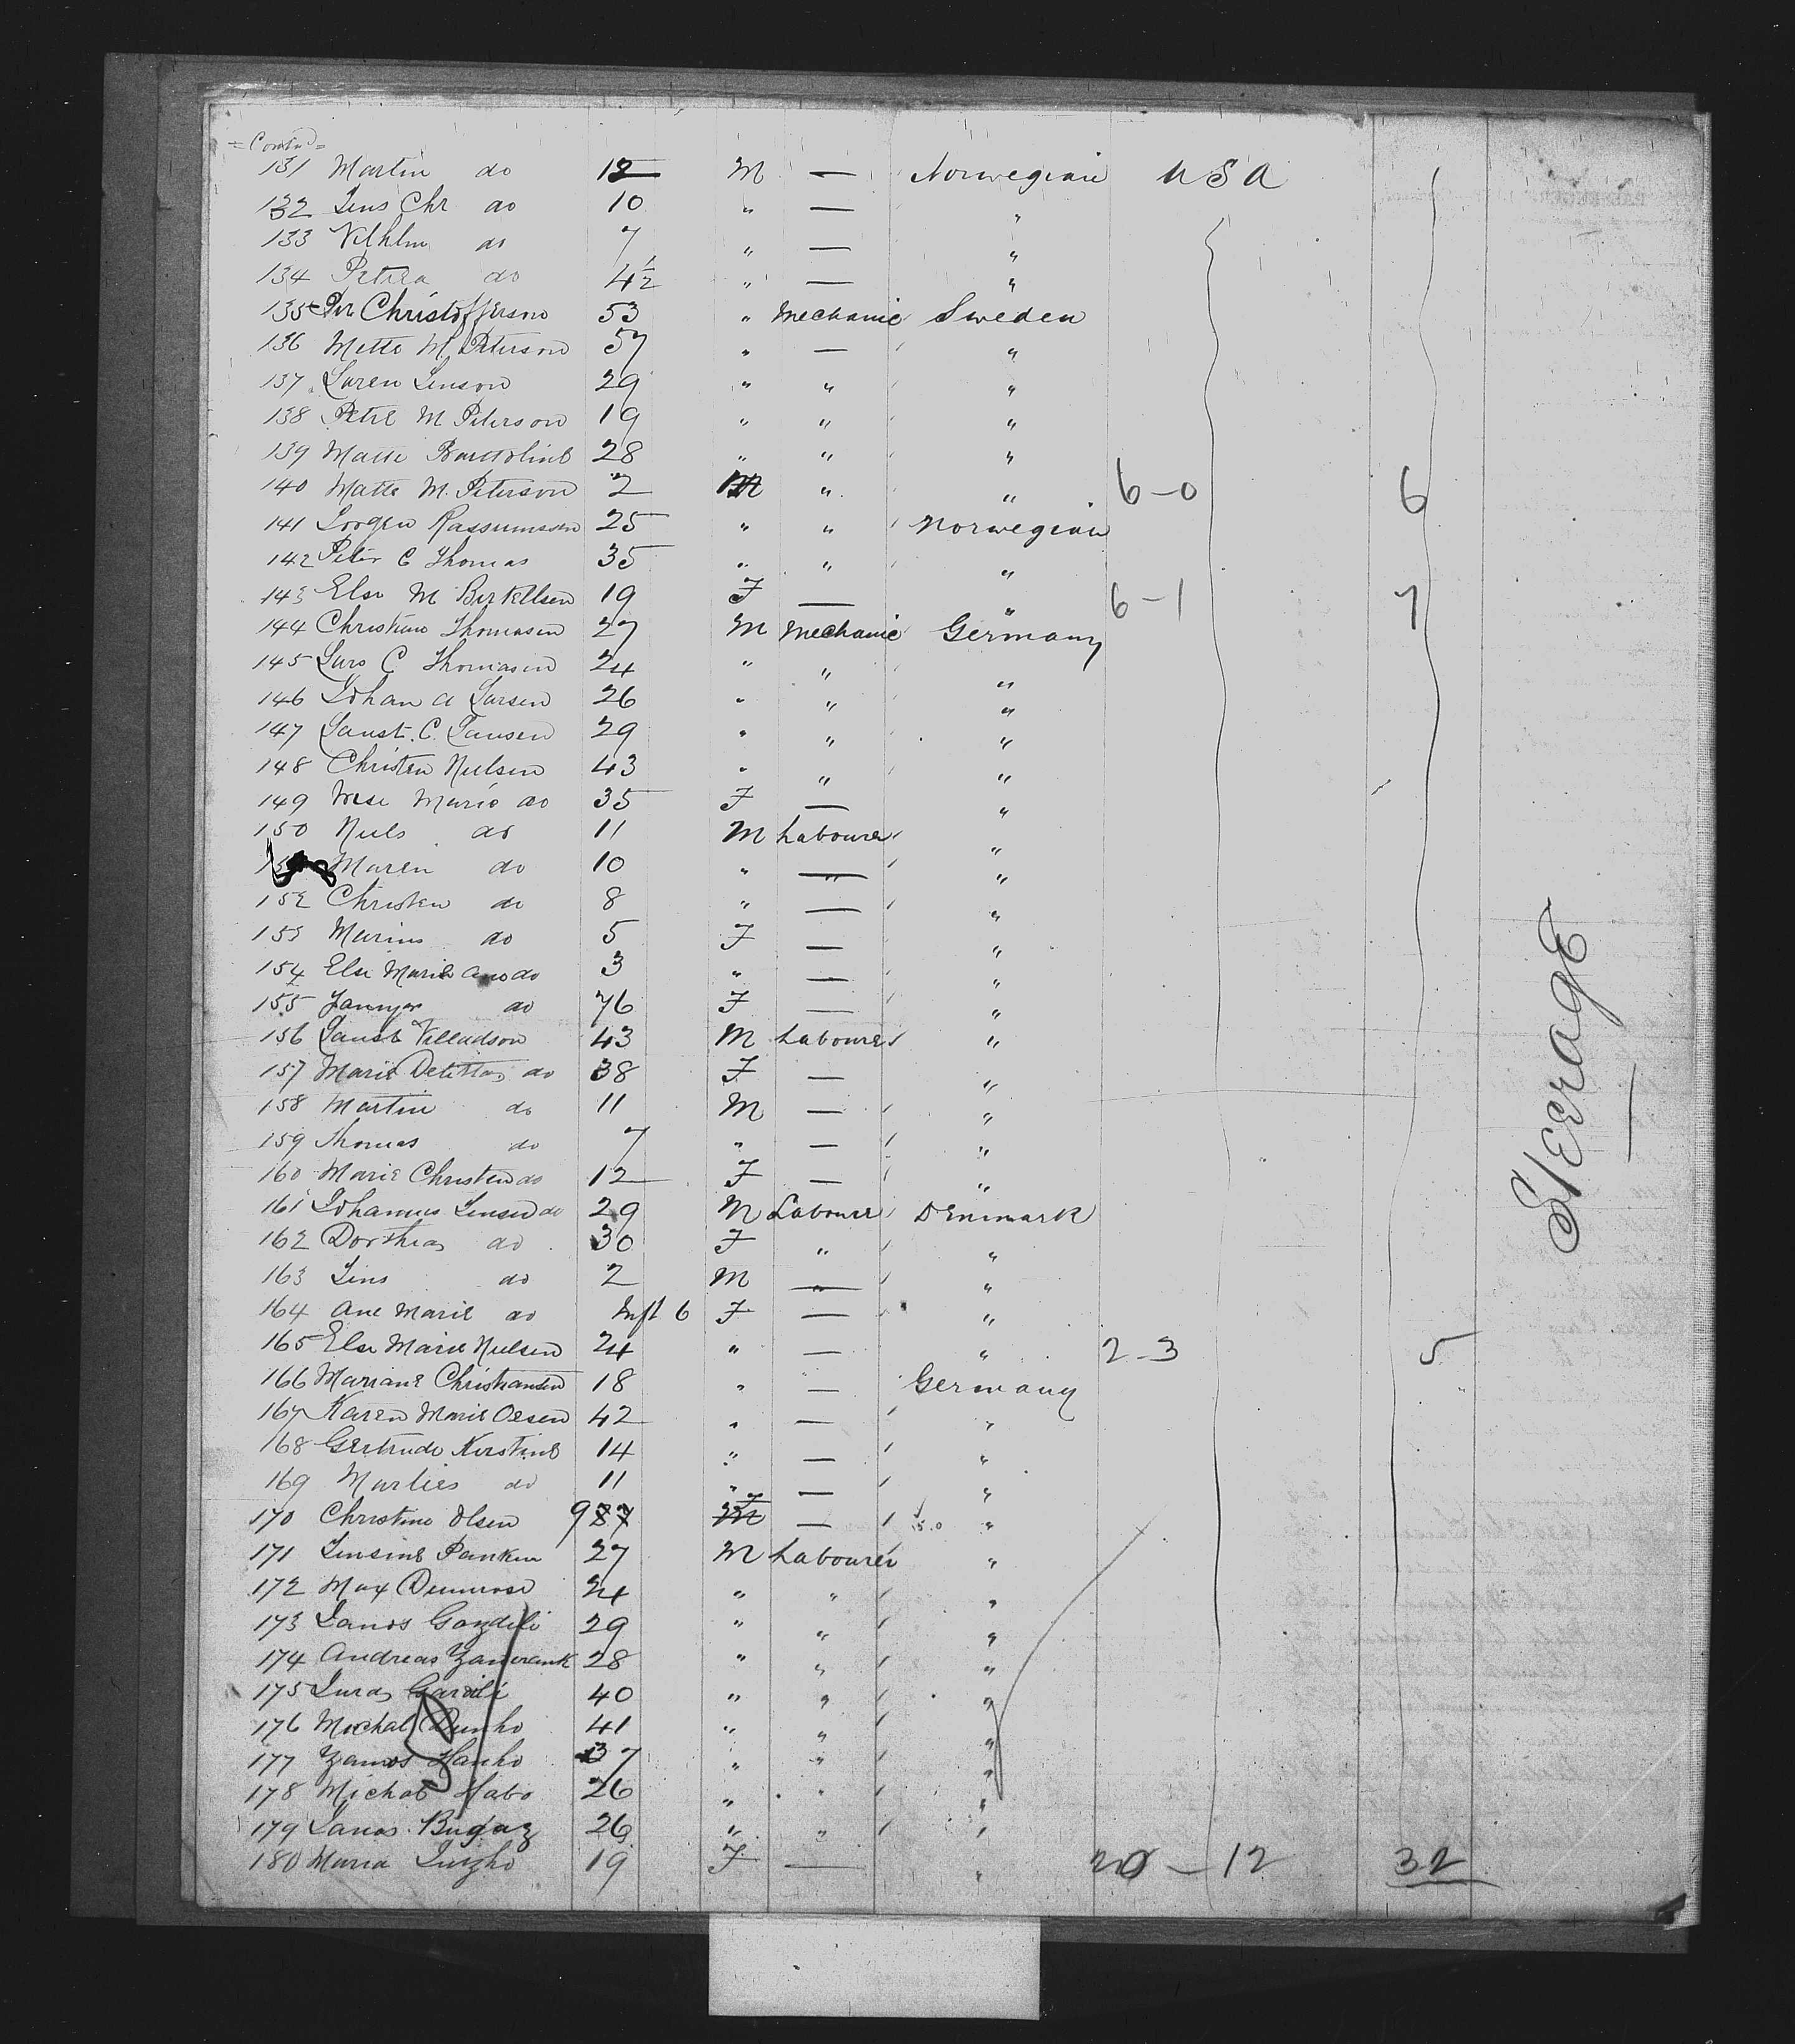 = Contd =
131 Martin do 12 M — Norwegian U S A
132 Jens Chr do 10 " — "
133 Vilhlm do 7 " — "
134 Petrea do 4 1/2 " — "
135 Per Christofferson 53 " Mechanic Sweden
136 Mette M. Peterson 57 " — "
137 Soren Jenson 29 " " "
138 Petre M Peterson 19 " " "
139 Matte 28 " " "
140 Matte M. Peterson 2 M " " 6-0 6
141 Jorgen Rassmussen 25 " " Norwegian
142 Peter C Thomas 35 " " "
143 Else M 19 F — " 6-1 7
144 Christian Thomasen 27 M Mechanic Germany
145 Lars C Thomasen 24 " " "
146 Johan A Larsen 26 " " "
147 Laust. C. Lausen 29 " " "
148 Christen Nielsen 43 " " "
149 Marie do 35 F — "
150 Niels do 11 M Labourer "
Maren do 10 " — "
152 Christen do 8 " — "
153 Marius do 5 F — "
154 Else Marie Ane do 3 " — "
155 do 76 F — "
156 Laust Villadson 43 M Labourer "
157 Marie do 38 F — "
158 Martin do 11 M — "
159 Thomas do 7 " — "
160 Marie Christen do 12 F — "
161 Johannes Jensen do 29 M Labourer Denmark
162 Dorthea do 30 F " "
163 Jens do 2 M — "
164 Ane Marie do Inft 6 F — "
165 Else Marie Nielsen 24 " — " 2-3 5
166 Mariane Christiansen 18 " — Germany
167 Karen Marie Oesen 42 " — "
168 Gertrude Kirstine 14 " — "
169 Marlies do 11 " — "
170 Christine Olsen 9 87 M F — "
171 Jensine Panken 27 M Labourer "
172 Max 24 " " "
173 Janos 29 " " "
174 Andreas 28 " " "
175 40 " " "
176 Michal Dunko 41 " " "
177 Hanko 37 " " "
178 Michal Habo 26 " " "
179 Janos Bugaz 26 " " "
180 Maria 19 F — " 20 — 12 32
Steerage